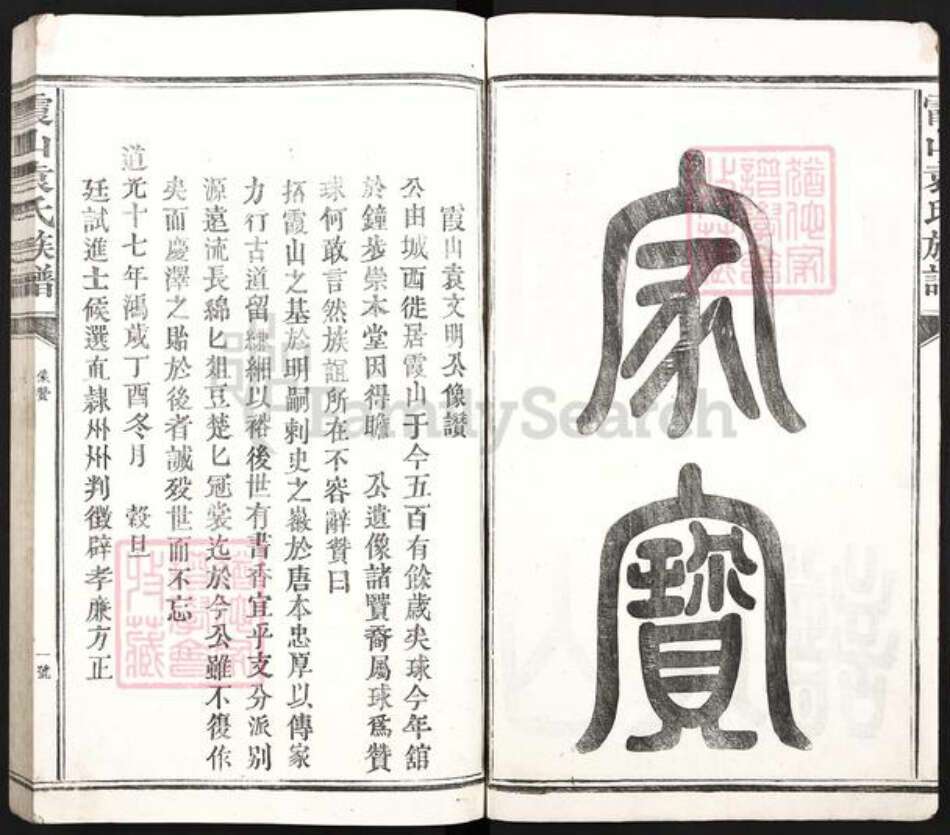 家
寶
霞山袁氏族譜
霞山袁文明公像讚
公由城西徙居霞山于今五百有餘歲矣球今年舘
於鐘步崇本堂因得瞻 公遺像諸賢裔屬球爲贊
球何敢言然族誼所在不容辭贊曰
拓霞山之基於明嗣剌史之徽於唐本忠厚以傳家
力行古道留緗以裕後世有書香宜乎支分派別
源遠流長綿匕俎豆楚匕冠裳迄於今公雖不復作
矣而慶澤之貽於後者誠殁世而不忘
道光十七年鴻歲丁酉冬月 穀旦
廷試進士候選直隸州州判徵辟孝廉方正
霞山袁氏族譜
像贊
一號
FamilySearch